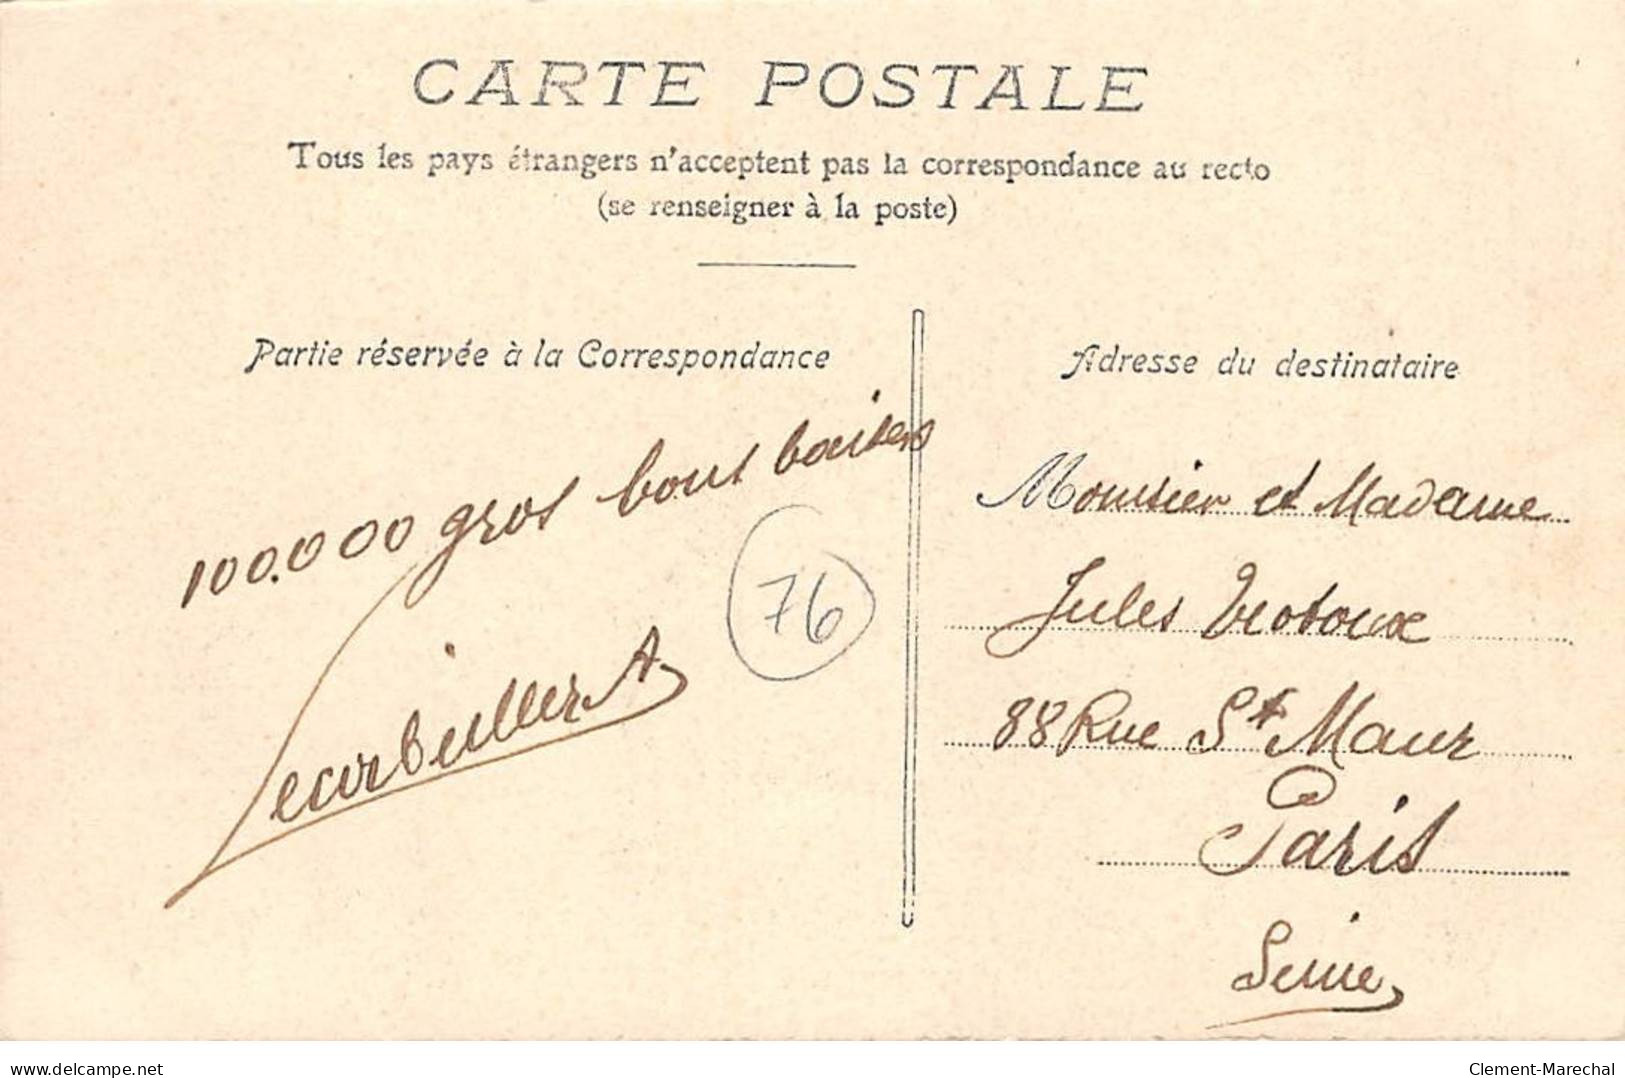 CARTE POSTALE
Tous les pays étrangers n'acceptent pas la correspondance au recto
(se renseigner à la poste)
Partie réservée à la Correspondance
100.000 gros bons baisers
76
Lecorbeiller A
Adresse du destinataire
Monsieur et Madame
Jules
88 Rue St Maur
Paris
Seine
delcampe.net
Clement-Marechal